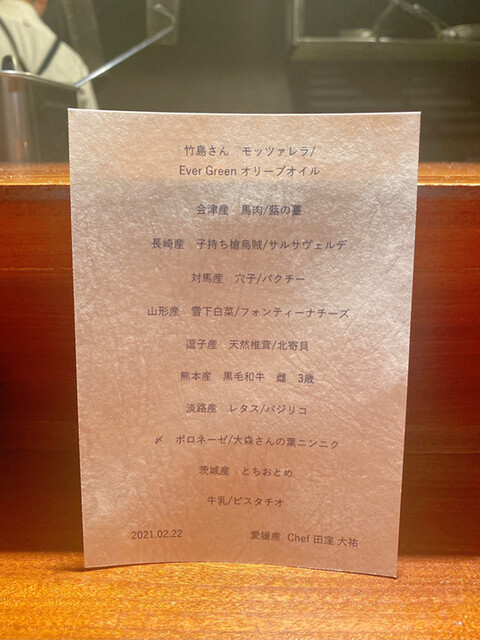 竹島さん　モッツァレラ/
Ever Green オリーブオイル
会津産　馬肉/蕗の薹
長崎産　子持ち槍烏賊/サルサヴェルデ
対馬産　穴子/パクチー
山形産　雪下白菜/フォンティーナチーズ
逗子産　天然椎茸/北寄貝
熊本産　黒毛和牛　雌　3歳
淡路産　レタス/バジリコ
〆　ボロネーゼ/大森さんの葉ニンニク
茨城産　とちおとめ
牛乳/ピスタチオ
2021.02.22　愛媛産 Chef 田窪 大祐